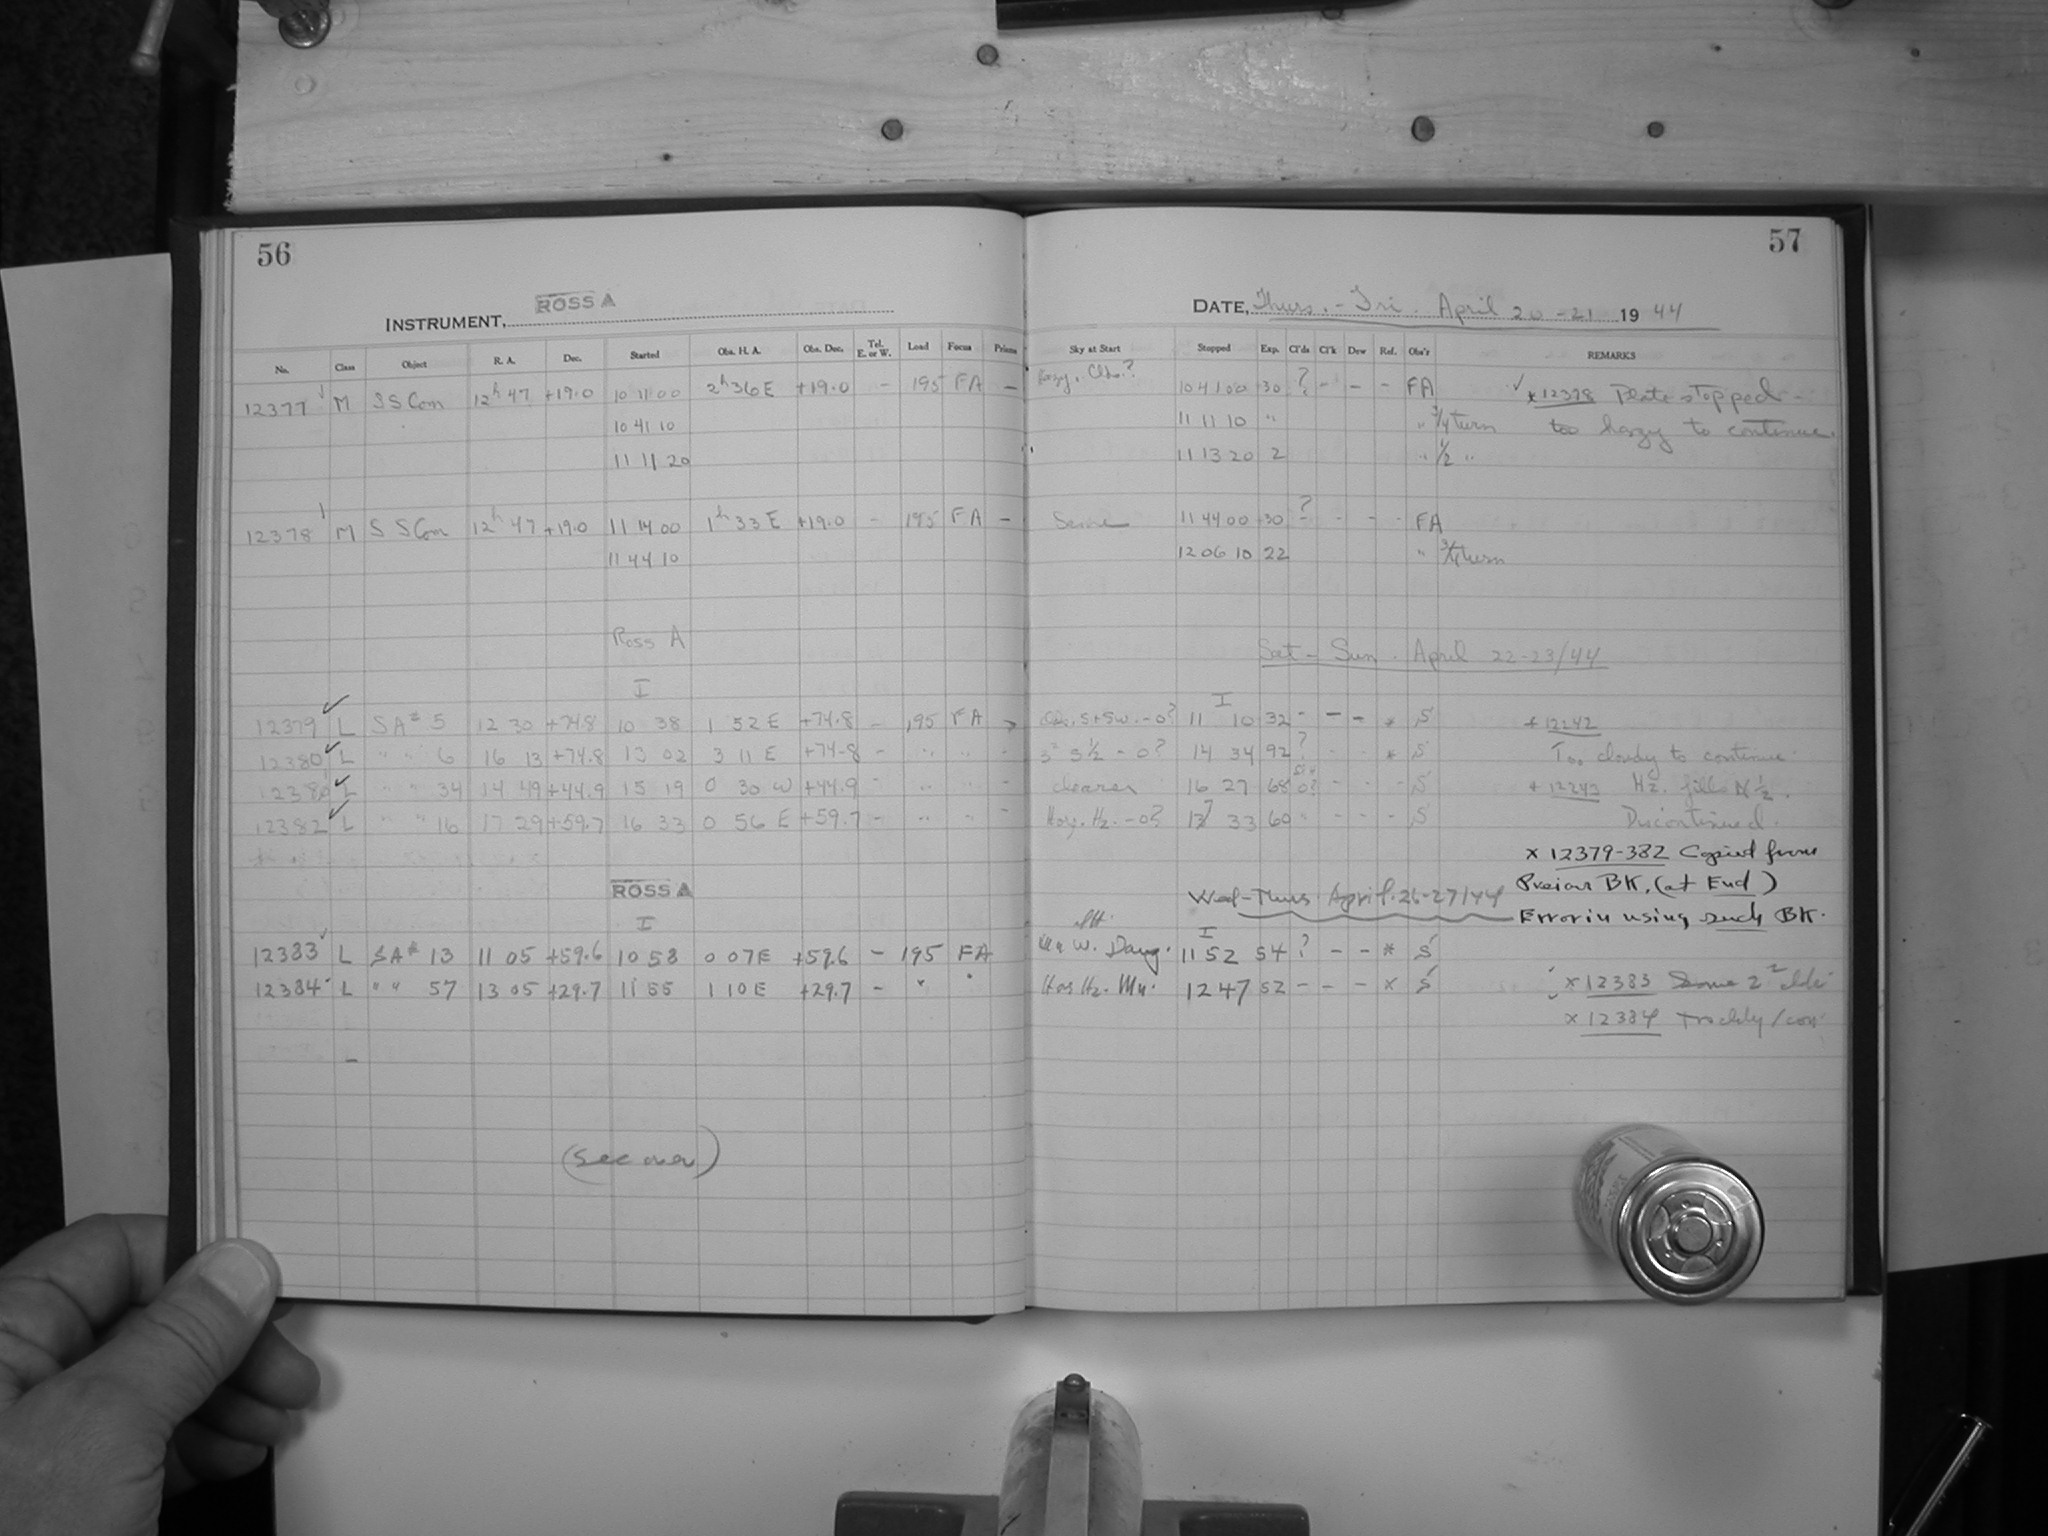 56
INSTRUMENT, ROSS A
No. Class Object R. A. Dec. Started Obs. H. A. Obs. Dec. Tel. E. or W. Load Focus Prisms
12377 M SS Com 12h 47 +19.0 10 11 00 2h 36 E +19.0 - 195 FA -
10 41 10
11 11 20
12378 M S S Com 12h 47 +19.0 11 14 00 1h 33 E +19.0 - 195 FA -
11 44 10
Ross A
I
12379 L SA# 5 12 30 +74.8 10 38 1 52 E +74.8 - 195 FA
12380 L " " 6 16 13 +74.8 13 02 3 11 E +74.8 - " "
L " " 34 14 49 +44.9 15 19 0 30 W +44.9 - " "
12382 L " " 16 17 29 +59.7 16 33 0 56 E +59.7 - " "
ROSS A
I
12383 L SA# 13 11 05 +59.6 10 58 0 07 E +59.6 - 195 FA
12384 L " " 57 13 05 +29.7 11 55 1 10 E +29.7 - " "
(see over)
57
DATE, Thurs. - Fri. April 20-21 1944
Sky at Start Stopped Exp. Cl'ds Cl'k Dew Ref. Obs'r REMARKS
Hazy, Clds.? 10 41 00 30 ? - - - FA x 12378 Plate stopped -
11 11 10 " " 3/4 turn too hazy to continue.
11 13 20 2 " 1/2 "
Same 11 44 00 30 ? - - - FA
12 06 10 22 " 3/4 turn
Sat - Sun. April 22-23/44
I
11 10 32 - - - * S
14 34 92 ? * S Too cloudy to continue.
clearer 16 27 68 - - - S Hz. fills N 1/2.
Hor. Hz. - 0? 17 33 60 " - - - S Discontinued.
x 12379-382 Copied from
BK. (at End)
Wed-Thurs April 26-27/44 Error in using such BK.
I
W. 11 52 54 ? - - * S
Hor Hz. 12 47 52 - - - x S x 12383 Some
x 12384